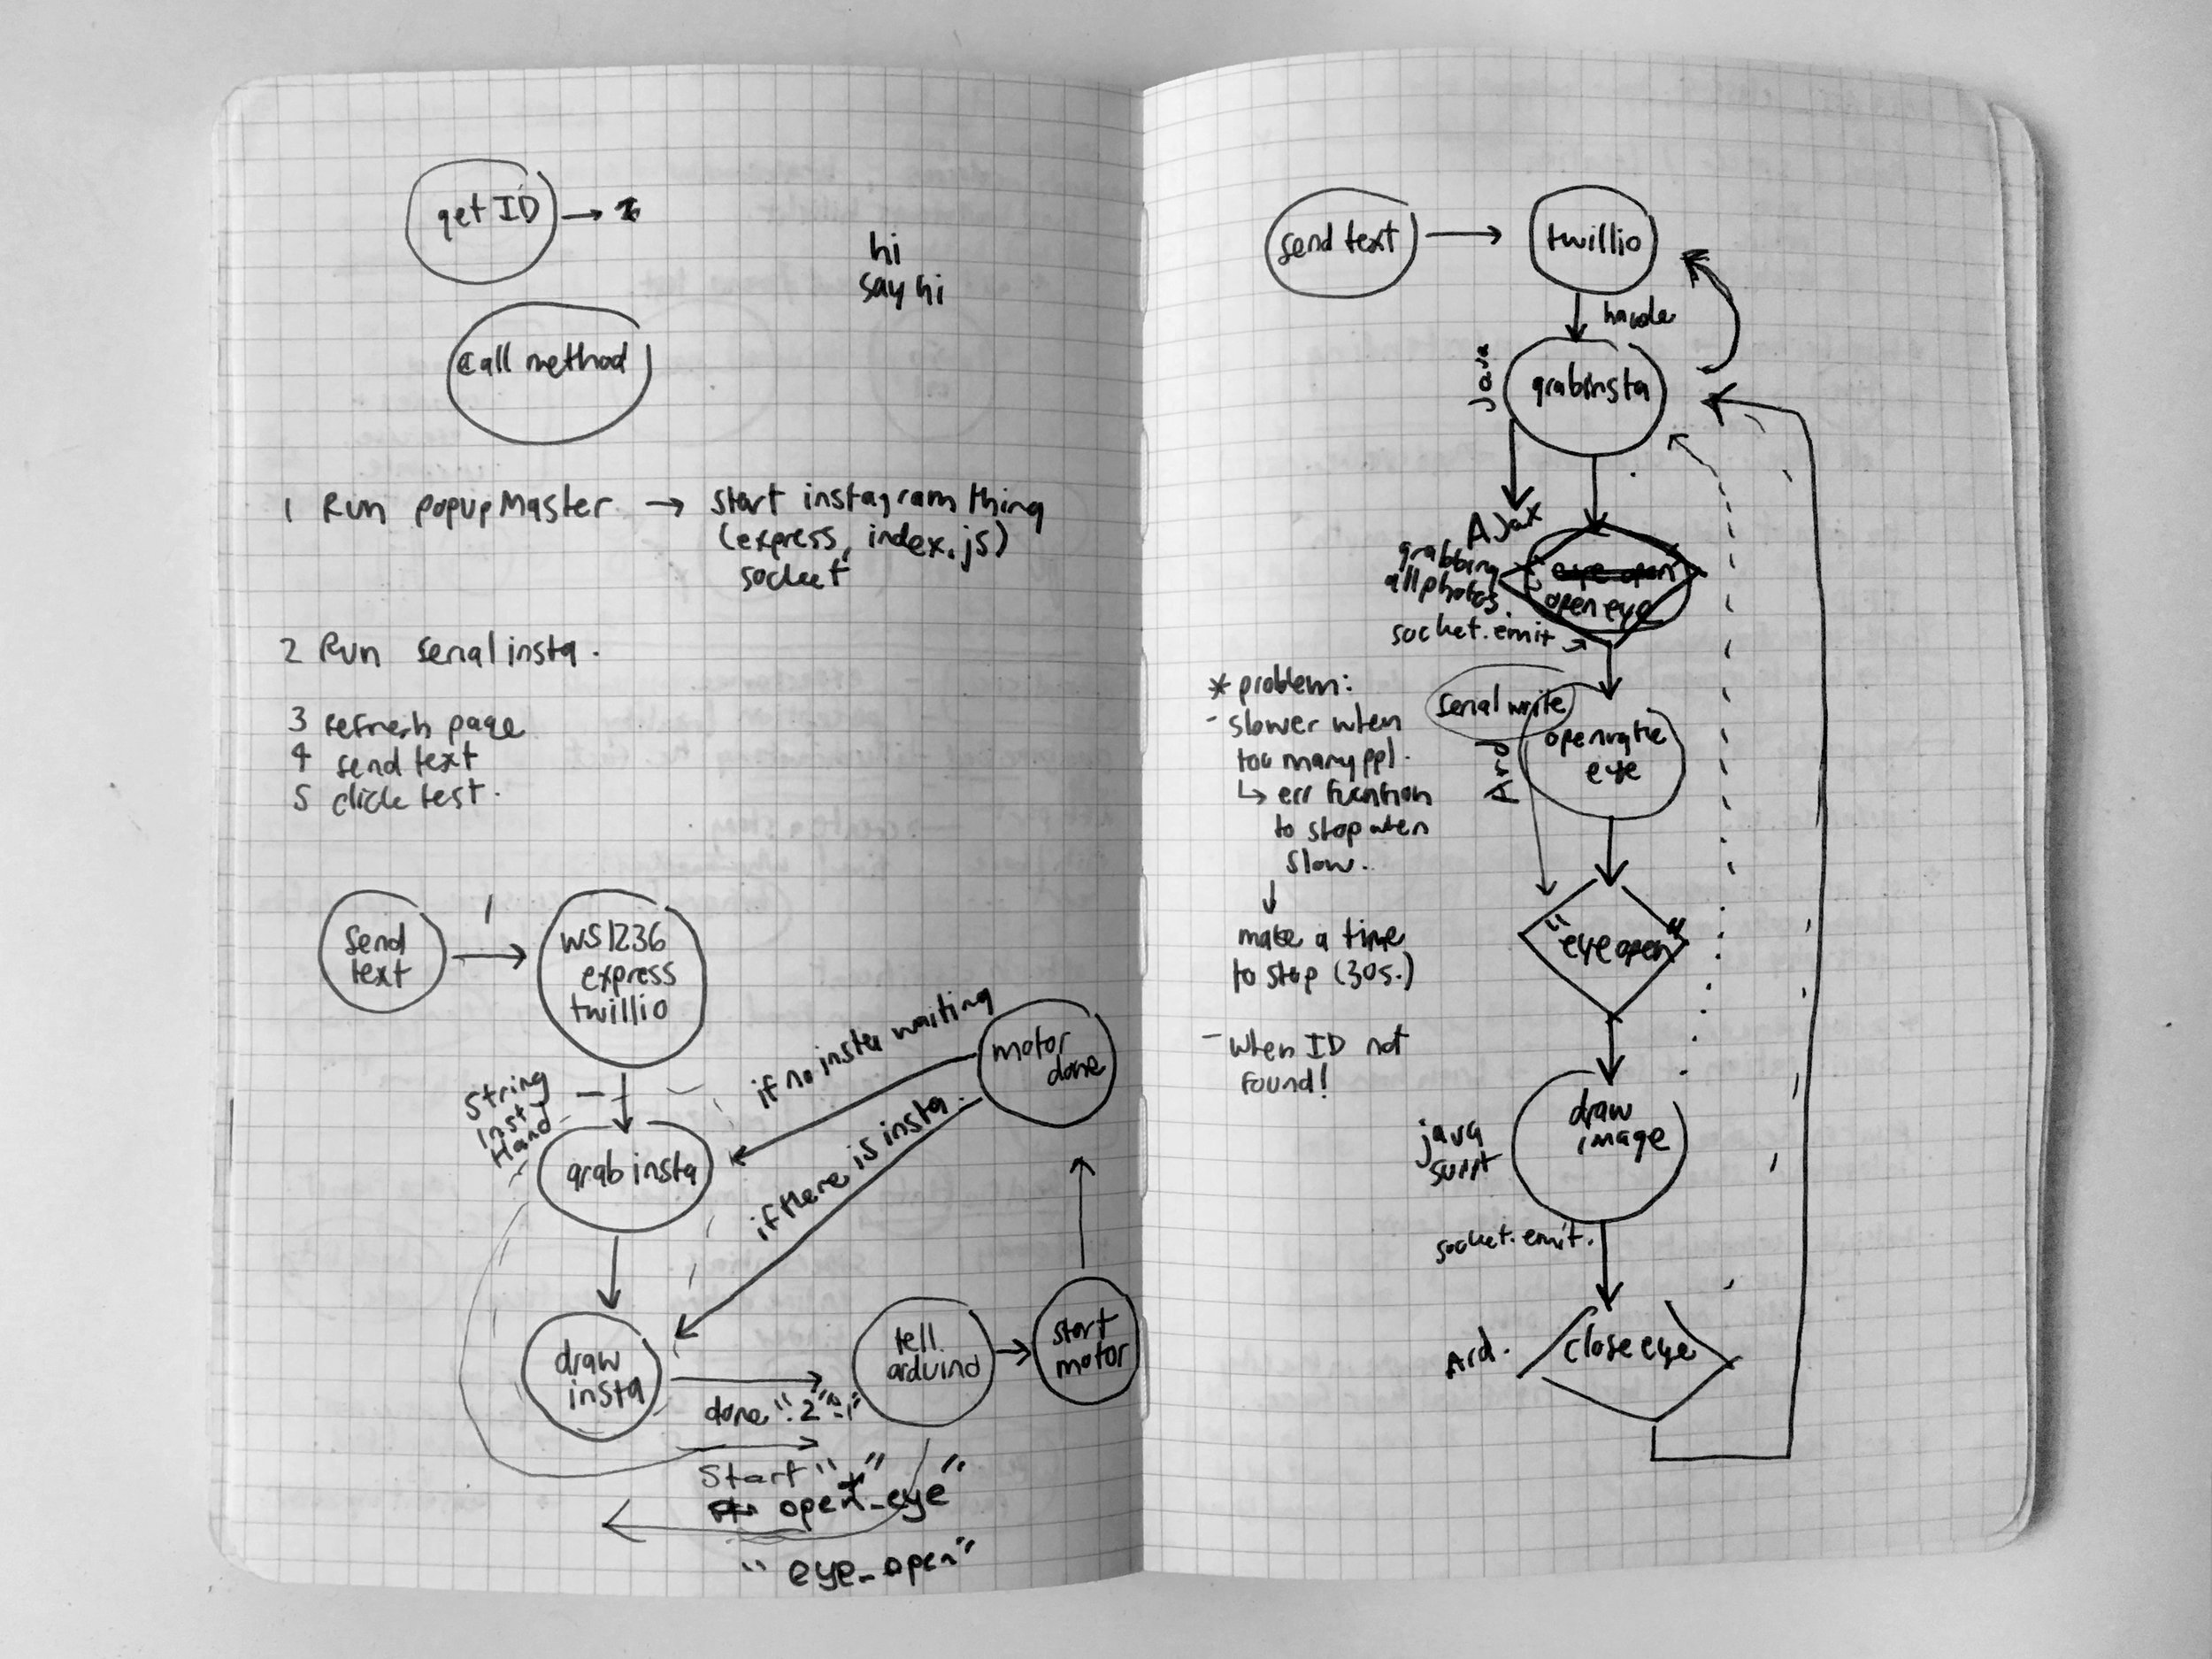 getID →
hi
say hi
call method
1 Run popupMaster → start instagram thing
(express, index.js)
socket
2 Run serial insta.
3 refresh page
4 send text
5 click test.
send
text
1
WS1236
express
twillio
String
Inst
Hand
grab insta
if no insta waiting
if there is insta.
motor
done
draw
insta
done "2"
tell
arduino
start
motor
Start " "
open_eye"
"eye_open"
send text
twillio
Java
grabinsta
AJax
grabbing
all photos
eye open
open eye
socket.emit
* problem:
- slower when
too many ppl.
↳ err function
to stop when
slow.
↓
make a time
to stop (30s.)
- when ID not
found!
serial write
Ard
eye
"eye open"
java
draw
image
socket.emit.
Ard.
close eye